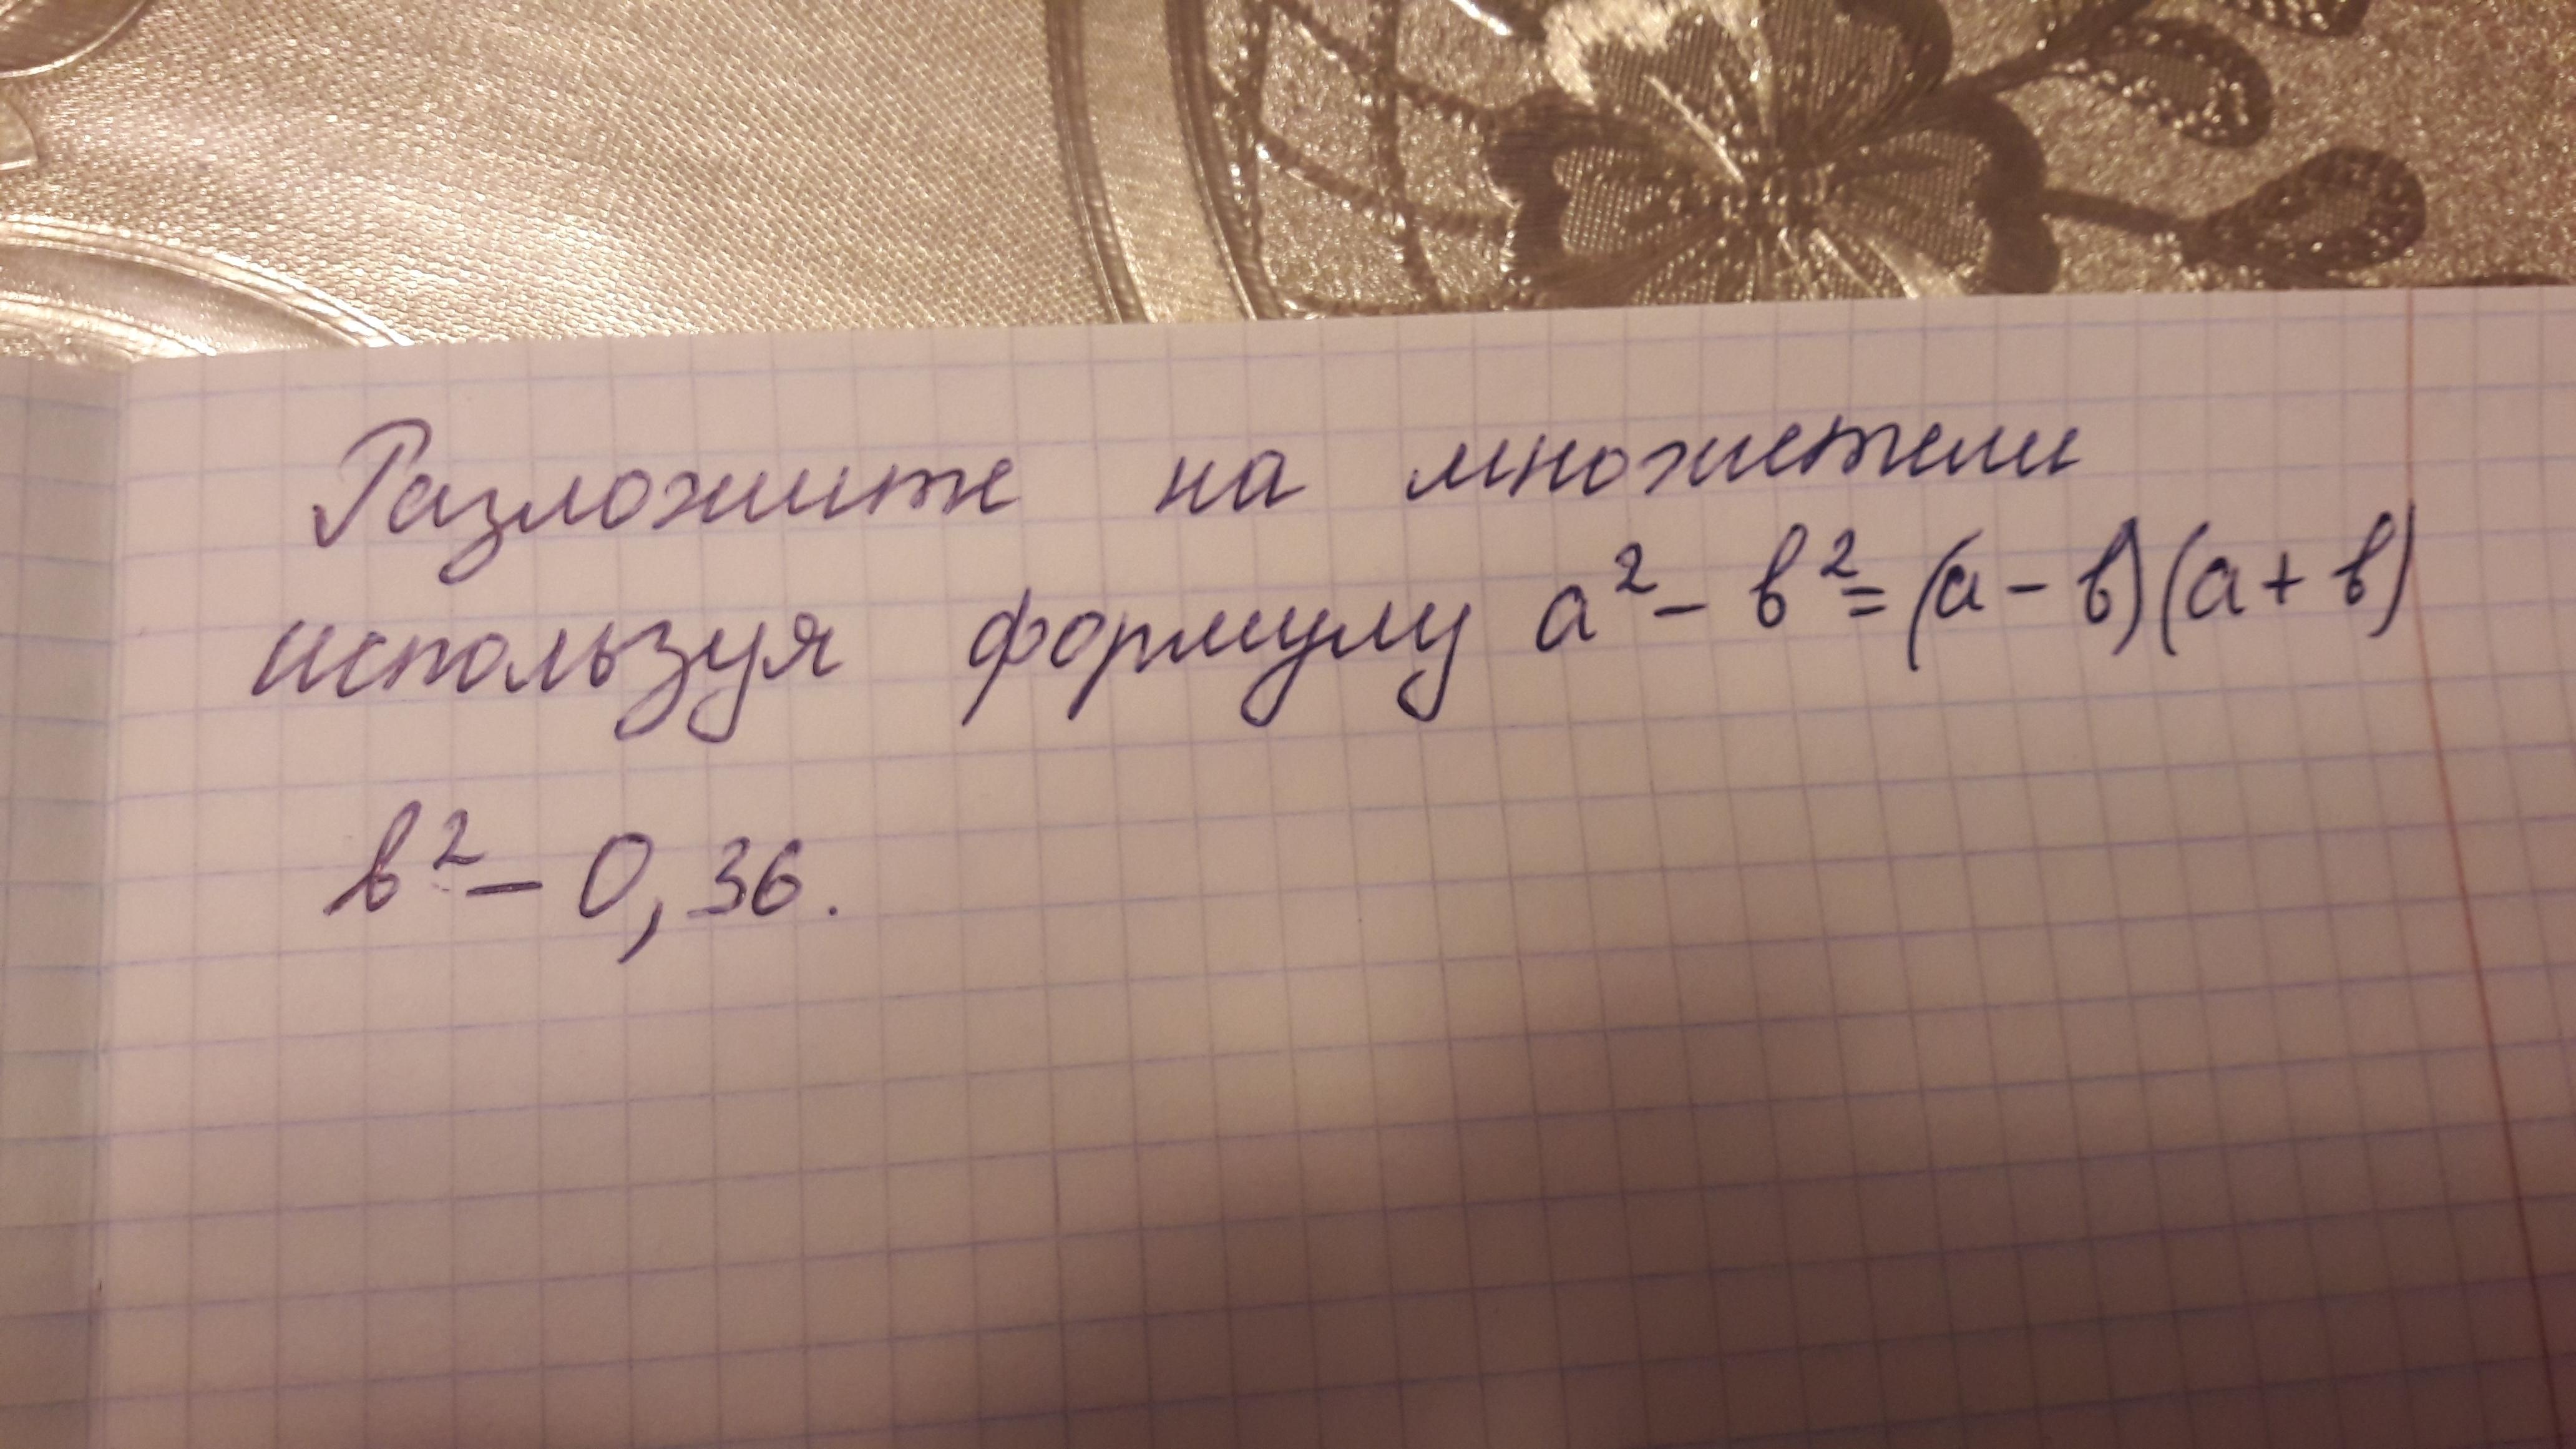 Разложите на множетели
используя формулу a² - b² = (a - b)(a + b)
b² - 0,36.